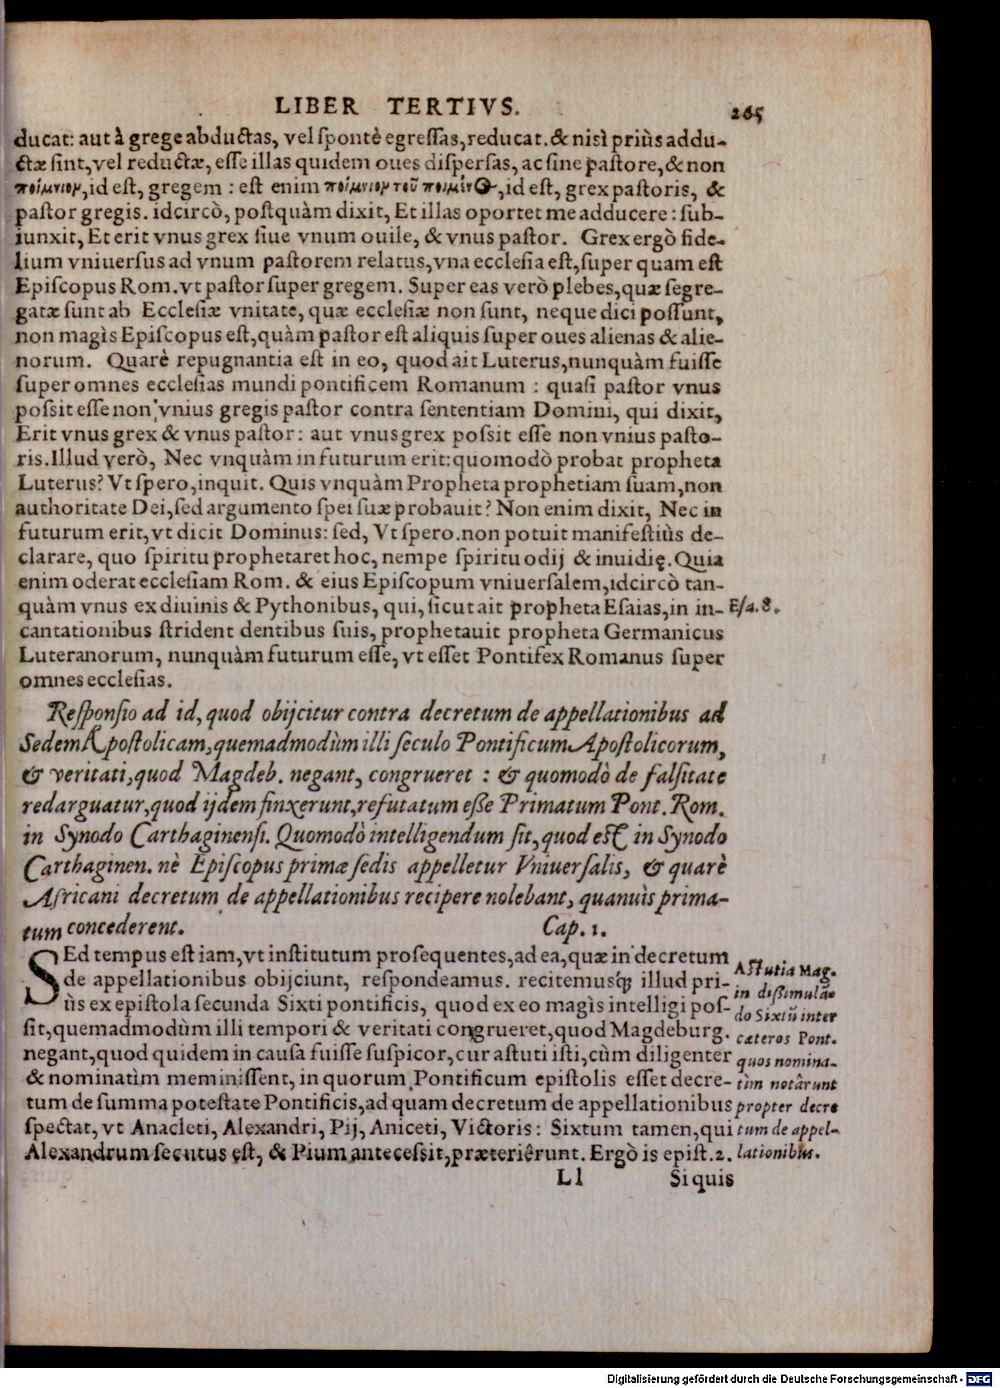 LIBER TERTIVS. 265
ducat: aut à grege abductas, vel spontè egressas, reducat. & nisì priùs addu-
ctæ sint, vel reductæ, esse illas quidem oues dispersas, ac sine pastore, & non
ποίμνιον, id est, gregem : est enim ποίμνιον τοῦ ποιμέν⊙, id est, grex pastoris, &
pastor gregis. idcircò, postquàm dixit, Et illas oportet me adducere : sub-
iunxit, Et erit vnus grex siue vnum ouile, & vnus pastor. Grex ergò fide-
lium vniuersus ad vnum pastorem relatus, vna ecclesia est, super quam est
Episcopus Rom. vt pastor super gregem. Super eas verò plebes, quæ segre-
gatæ sunt ab Ecclesiæ vnitate, quæ ecclesiæ non sunt, neque dici possunt,
non magìs Episcopus est, quàm pastor est aliquis super oues alienas & alie-
norum. Quarè repugnantia est in eo, quod ait Luterus, nunquàm fuisse
super omnes ecclesias mundi pontificem Romanum : quasi pastor vnus
possit esse non vnius gregis pastor contra sententiam Domini, qui dixit,
Erit vnus grex & vnus pastor : aut vnus grex possit esse non vnius pasto-
ris. Illud verò, Nec vnquàm in futurum erit: quomodò probat propheta
Luterus? Vt spero, inquit. Quis vnquàm Propheta prophetiam suam, non
authoritate Dei, sed argumento spei suæ probauit? Non enim dixit, Nec in
futurum erit, vt dicit Dominus: sed, Vt spero. non potuit manifestiùs de-
clarare, quo spiritu prophetaret hoc, nempe spiritu odij & inuidię. Quia
enim oderat ecclesiam Rom. & eius Episcopum vniuersalem, idcircò tan-
quàm vnus ex diuinis & Pythonibus, qui, sicut ait propheta Esaias, in in-
Esa. 8.
cantationibus strident dentibus suis, prophetauit propheta Germanicus
Luteranorum, nunquàm futurum esse, vt esset Pontifex Romanus super
omnes ecclesias.
Responsio ad id, quod obijcitur contra decretum de appellationibus ad
Sedem Apostolicam, quemadmodùm illi seculo Pontificum Apostolicorum,
& veritati, quod Magdeb. negant, congrueret : & quomodò de falsitate
redarguatur, quod ijdem finxerunt, refutatum esse Primatum Pont. Rom.
in Synodo Carthaginensi. Quomodò intelligendum sit, quod est in Synodo
Carthaginen. nè Episcopus primæ sedis appelletur Vniuersalis, & quarè
Africani decretum de appellationibus recipere nolebant, quanuìs prima-
tum concederent. Cap. 1.
SEd tempus est iam, vt institutum prosequentes, ad ea, quæ in decretum
de appellationibus obijciunt, respondeamus. recitemusq́; illud pri-
ùs ex epistola secunda Sixti pontificis, quod ex eo magìs intelligi pos-
sit, quemadmodùm illi tempori & veritati congrueret, quod Magdeburg.
negant, quod quidem in causa fuisse suspicor, cur astuti isti, cùm diligenter
& nominatìm meminissent, in quorum Pontificum epistolis esset decre-
tum de summa potestate Pontificis, ad quam decretum de appellationibus
spectat, vt Anacleti, Alexandri, Pij, Aniceti, Victoris : Sixtum tamen, qui
Alexandrum secutus est, & Pium antecessit, præteriêrunt. Ergò is epist. 2.
Astutia Mag.
in dissimulã-
do Sixtũ inter
cæteros Pont.
quos nomina-
tìm notârunt
propter decre
tum de appel-
lationibus.
Ll Si quis
Digitalisierung gefördert durch die Deutsche Forschungsgemeinschaft - DFG